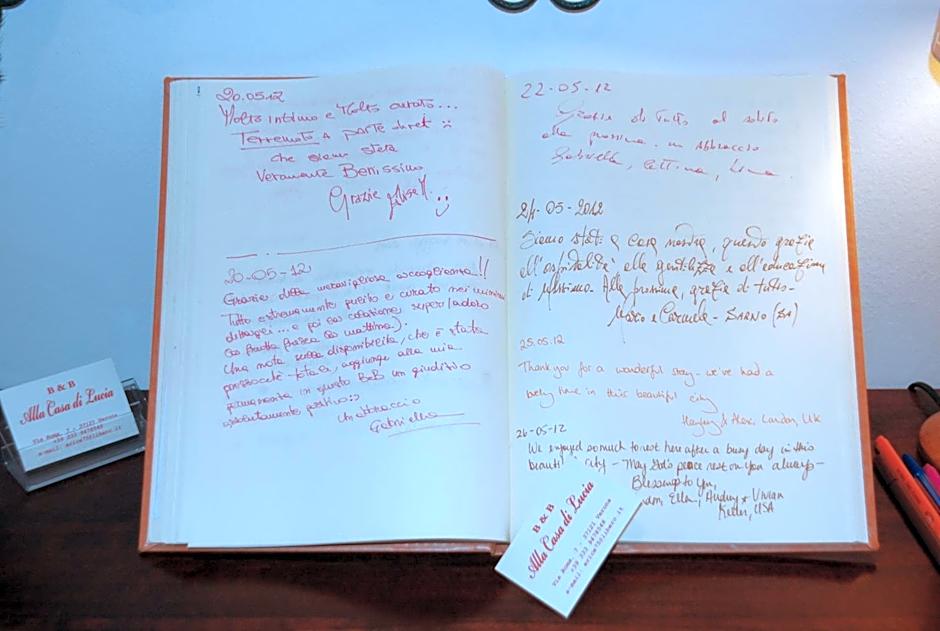 20.05.12
Molto intimo e Molto curato...
Terremoto a parte direi :)
che siamo state
Veramente Benissimo
Grazie
20-05-12
Grazie della meravigliosa accoglienza!!
Tutto estremamente pulito e curato nei minimi
dettagli... e poi la colazione super (adoro
la frutta fresca la mattina).
Una nota sulla disponibilità, che è stata
pressoché totale, aggiunge alla mia
permanenza in questo B&B un giudizio
assolutamente positivo :)
Un abbraccio
Gabriella
22-05-12
Grazie di tutto al solito
alla prossima. un abbraccio
Gabriella, Cettina, Lina.
24-05-2012
Siamo stati a casa nostra, questo grazie
all'ospitalità alla gentilezza e all'educazione
di Massimo. Alla prossima, grazie di tutto-
Marco e Carmela - SARNO (SA)
25.05.12
Thank you for a wonderful stay - we've had a
lovely time in this beautiful city
London, UK
26-05-12
We enjoyed so much to rest here after a busy day in this
city - May God's peace rest on you always -
Blessings to you,
Ellen, Audrey & Vivian
USA
B & B
Alla Casa di Lucia
Via Roma, 7 - 37121 Verona
B & B
Alla Casa di Lucia
Via Roma, 7 - 37121 Verona